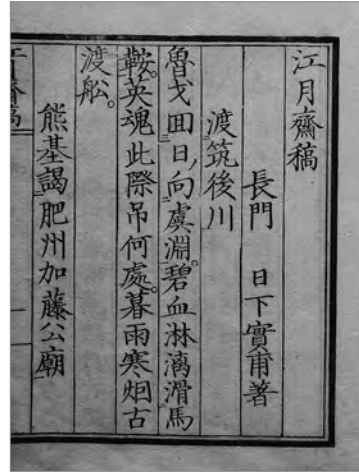 江月齋稿
長門　日下實甫著
渡筑後川
魯戈囬日向虞淵。碧血淋漓滑馬
鞍。英魂此際吊何處。暮雨寒烟古
渡舩。
熊基謁肥州加藤公廟